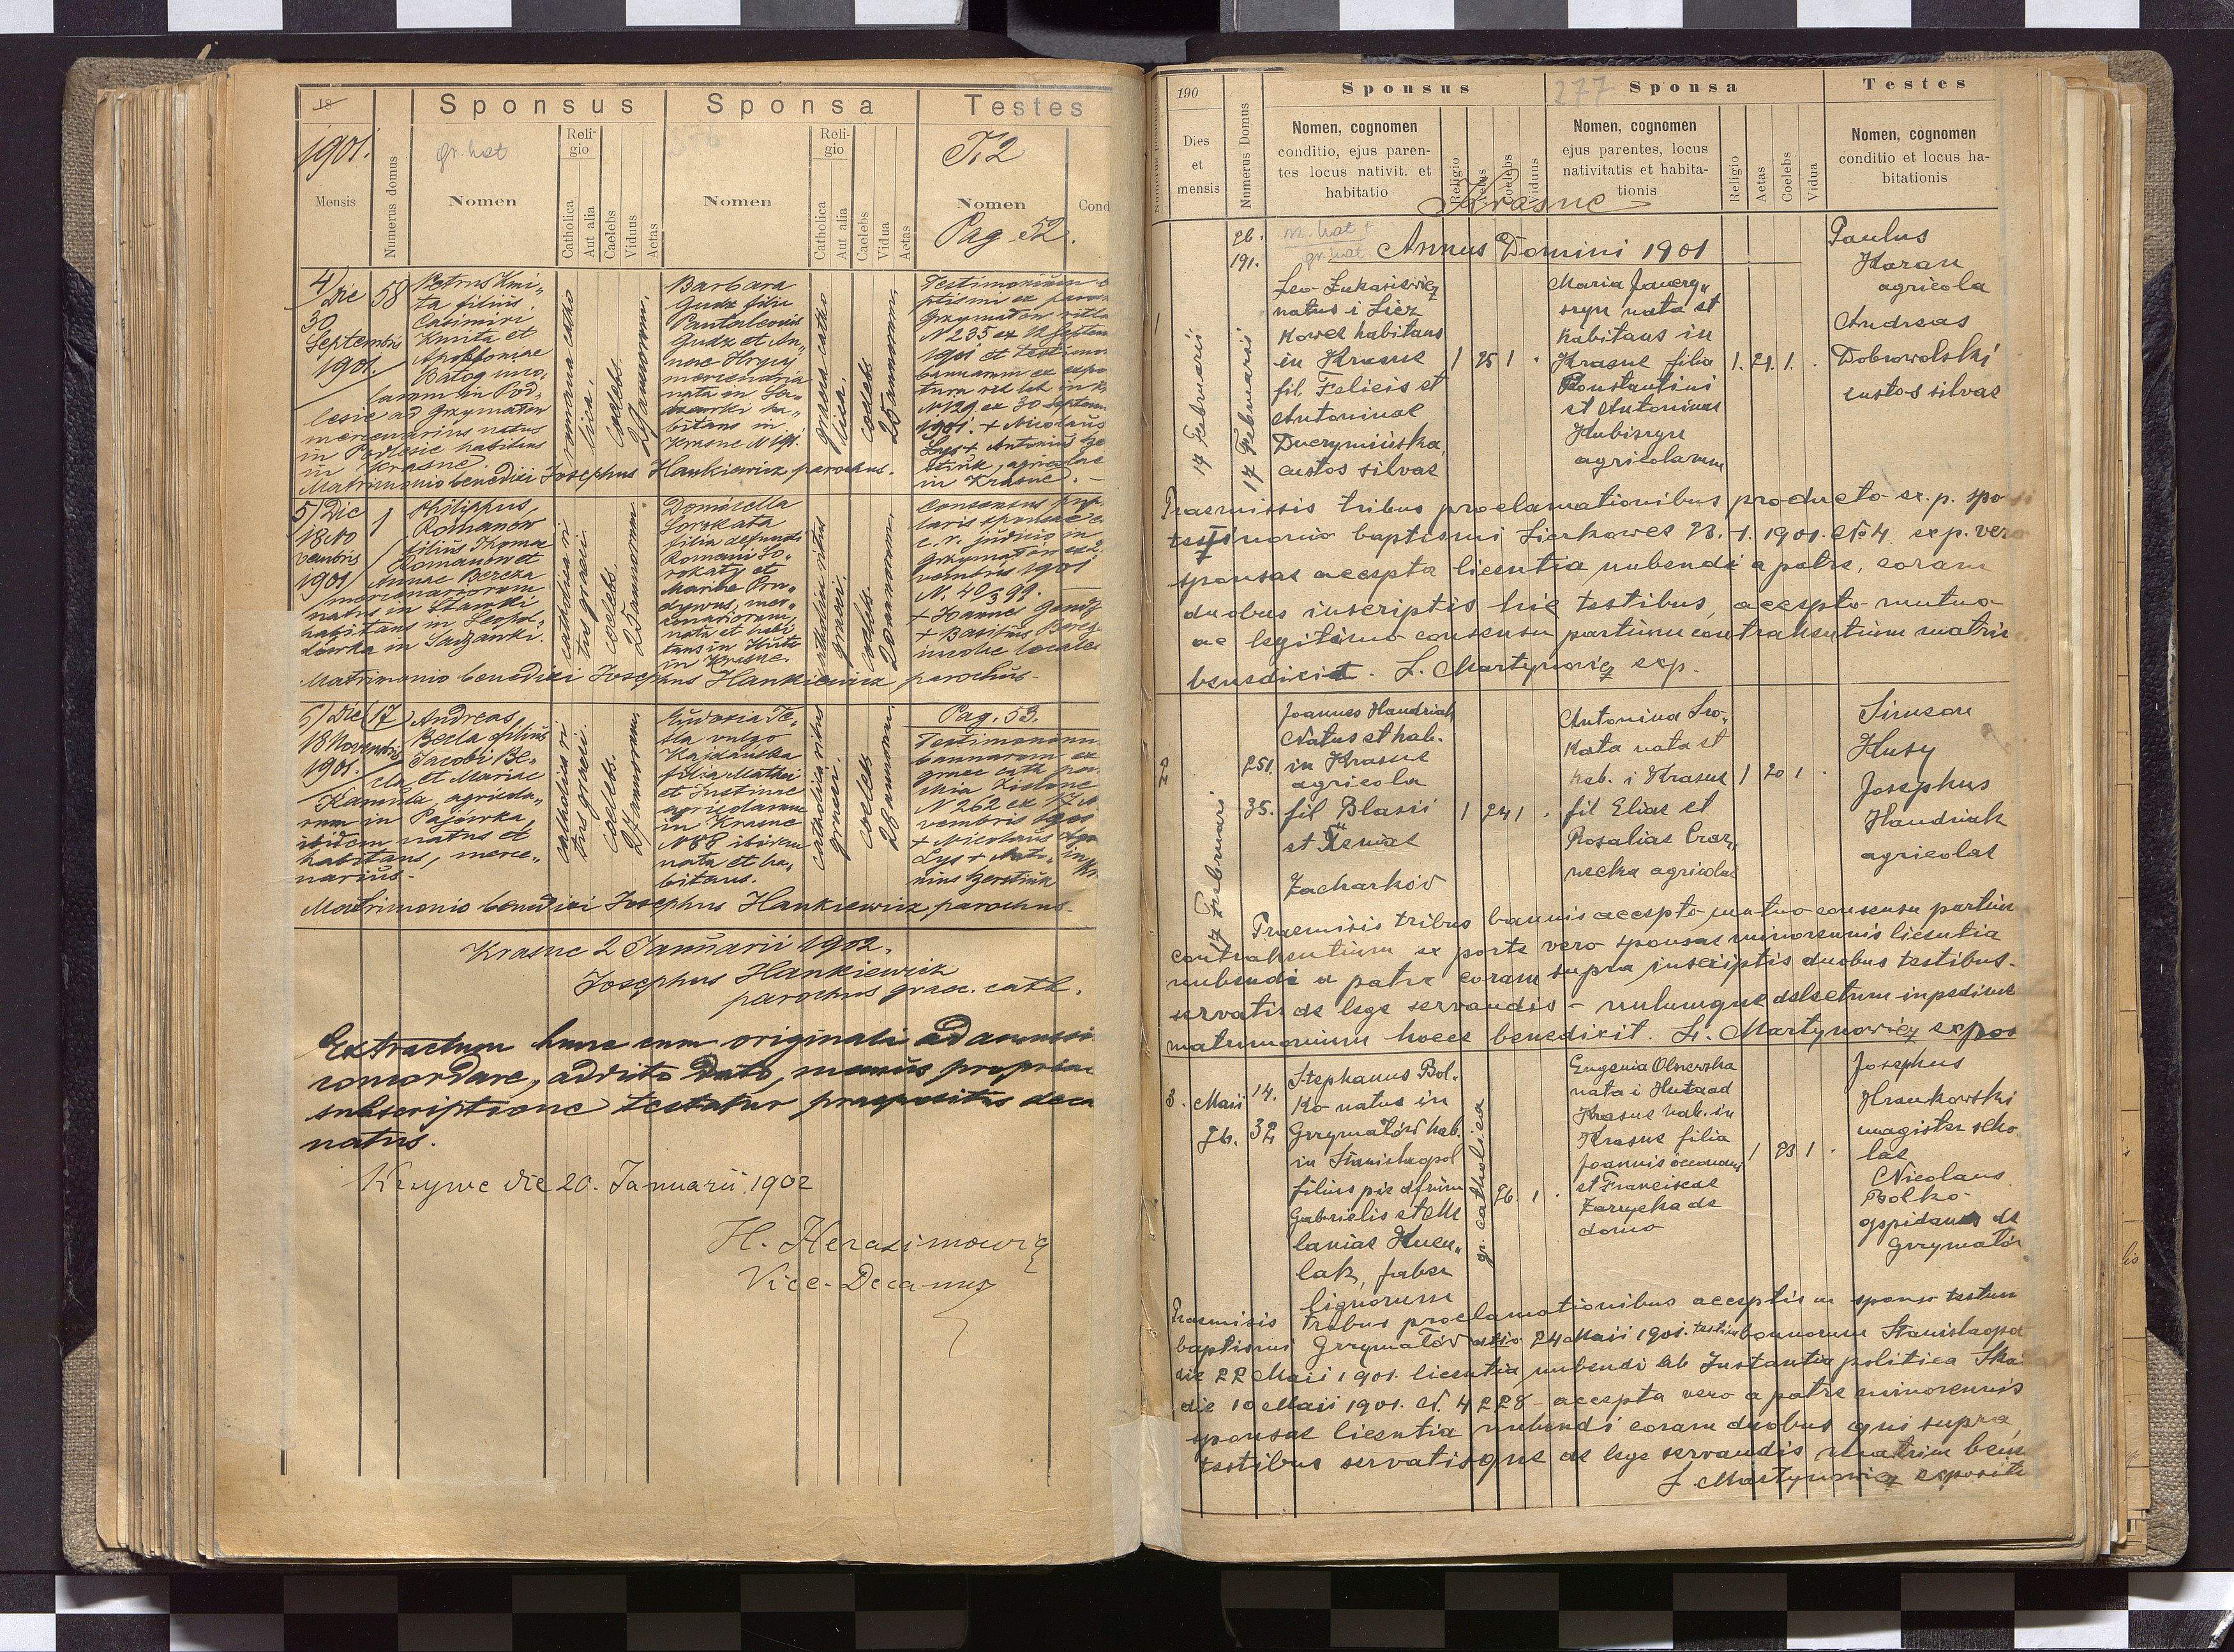 18
Sponsus Sponsa Testes
1901.
gr. kat
Reli-
gio
Reli-
gio
T. 2
Mensis
Numerus domus
Nomen
Catholica
Aut alia
Caelebs
Viduus
Aetas
Nomen
Catholica
Aut alia
Caelebs
Vidua
Aetas
Nomen
Cond
Pag 52.
4/
Die
30
Septembris
1901.
58
Petrus Kmi„
ta filius
Casimiri
Kmita et
Apolloniae
Batog
in Pod„
lesie ad Grzymałów
mercenarius natus
in Podlesie habitans
in Krasne
romana catho
lica.
coelebs.
27 annorum.
Barbara
Gudz filia
Pantaleonis
Gudz et An„
nae
mercenaria
nata in
ha„
bitans in
Krasne N
graeca catho
lica.
coelebs
25 annorum.
Testimonium
ptismi ex
Grzymałów
N 235 ex 12 Septem
1901 et testimo
bannorum ex expo
tura
N 129 ex 30 Septem
1901. + Nicolaus
Lys + Antonius
agricolae
in Krasne. -
Matrimonio benedixi Josephus Hankiewicz parochus.
5/ Die
18 No
vembris
1901
1
Philippus,
Romanów
filius
Romanów et
Annae Bereza
mercenariorum
natus in
habitans in Leopol„
dówka in Sadzawki.
catholica ri
tus graeci.
coelebs.
25 annorum
Domicella
Sorokata
filia defuncti
Romani So„
rokaty et
Mariae
mer„
cenariorum,
nata et habi
tans in Huta
in Krasne
catholica ritus
graeci.
coelebs.
20 annorum.
Consensus pup
laris sponsae
c. r. judicio in
Grzymałów ex 2
vembris 1901
N.
+ Joannes
+ Basilius
locales
Matrimonio benedixi Josephus Hankiewicz parochus -
6/ Die
18 Novembris
1901.
17
Andreas
Becla filius
Jacobi Be„
cla et Mariae
Kamula, agricola„
rum in Pajówka,
ibidem natus et
habitans, merce„
narius.
catholica ri
tus graeci.
coelebs.
24 annorum.
Eudoxia Te„
sla vulgo
Kajdanska
filia Mathei
et Justinae
agricolarum
in Krasne
N 88 ibidem
nata et ha„
bitans.
catholica ritus
graeci.
coelebs
28 annorum.
Pag. 53.
Testimonium
bannorum ex
graec cath par
ohia Zielone
N 262 ex 17
vembris 1901
+ Nicolaus
Lys + Anto„
nius
Matrimonio benedixi Josephus Hankiewicz parochus.
Krasne 2 Januarii 1902.
Josephus Hankiewicz
parochus graec. cath.
Extractum hunc cum originali ad amussi
concordare, addito dato, manus propriae
subscriptione testatur praepositus deca
natus.
Krzywe die 20. Januarii 1902
H. Herasimowicz
Vice-Decanus
190
Sponsus 277 Sponsa Testes
Dies
et
mensis
Numerus Domus
Nomen, cognomen
conditio, ejus paren-
tes locus nativit. et
habitatio
Religio
Aetas
Coelebs
Viduus
Nomen, cognomen
ejus parentes, locus
nativitatis et habita-
tionis
Religio
Aetas
Coelebs
Vidua
Nomen, cognomen
conditio et locus ha-
bitationis
Krasne
26.
191.
gr. kat
Annus Domini 1901
1
17 Februarii
17 Februarii
Leo Łukasiewicz
natus i Licz
kowce habitans
in Krasne
fil Felicis et
Antoninae
Duczymińska,
custos silvae
1 25 1 .
Maria Jawery„
szyn nata et
habitans in
Krasne filia
Konstantini
et Antoninae
Hubiszyn
agricolarum
1. 21. 1. .
Paulus
Haran
agricola
Andreas
Dobrowolski
custos silvae
Praemissis tribus proclamationibus producto ex. p. sponsi
testimonio baptismi Liczkowce 23. 1. 1901. N 4 ex p. vero
sponsae accepta licentia nubendi a patre, coram
duobus inscriptis hic testibus, accepto mutuo
ac legitimo consensu partium contrahentium matrim
benedixit. L. Martynowicz exp.
2
17 Februarii
251.
35.
Joannes Handziak
Natus et hab.
in Krasne
agricola
fil Blasii
et Xeniae
Zacharków
1 24 1 .
Antonina Sro„
kata nata et
hab. i Krasne
fil Eliae et
Rosaliae Czar„
necka agricolae
1 20 1 .
Simeon
Husy
Josephus
Handziak
agricolae
Praemisis tribus bannis accepto mutuo consensu partium
contrahentium ex parte vero sponsae minorennis licentia
nubendi a patre coram supra inscriptis duobus testibus -
servatis de lege servandis - nulumque delectum inpedime
matrimonium hocce benedixit. L. Martynowicz expos
3. Maii
26.
14.
32
Stephanus Bol„
ko natus in
Grzymałów hab.
in Stanisławpol
filius pie dfum
Gabrielis et Me
laniae Hucu„
lak, faber
lignorum
gr. catholica
26. 1 .
Eugenia Olszewska
nata i Huta ad
Krasne hab. in
Krasne filia
Joannis
et Franciscae
Zarzycka de
domo
1 23 1 .
Josephus
Hrankowski
magister scho
lae
Nicolaus
Bolko
oppidanus de
Grzymałów
Praemisis tribus proclamationibus acceptis a sponso testim
baptismi Grzymałów 24 Maii 1901. testim bannorum Stanisławpol
die 22 Maii 1901. licentia nubendi ab Instantia politica Ska
die 10 Maii 1901. N. 4228 - accepta vero a patre minorennis
sponsae licentia nubendi coram duobus qui supra,
testibus servatisque de lege servandis matrim bene
L. Martynowicz exposit